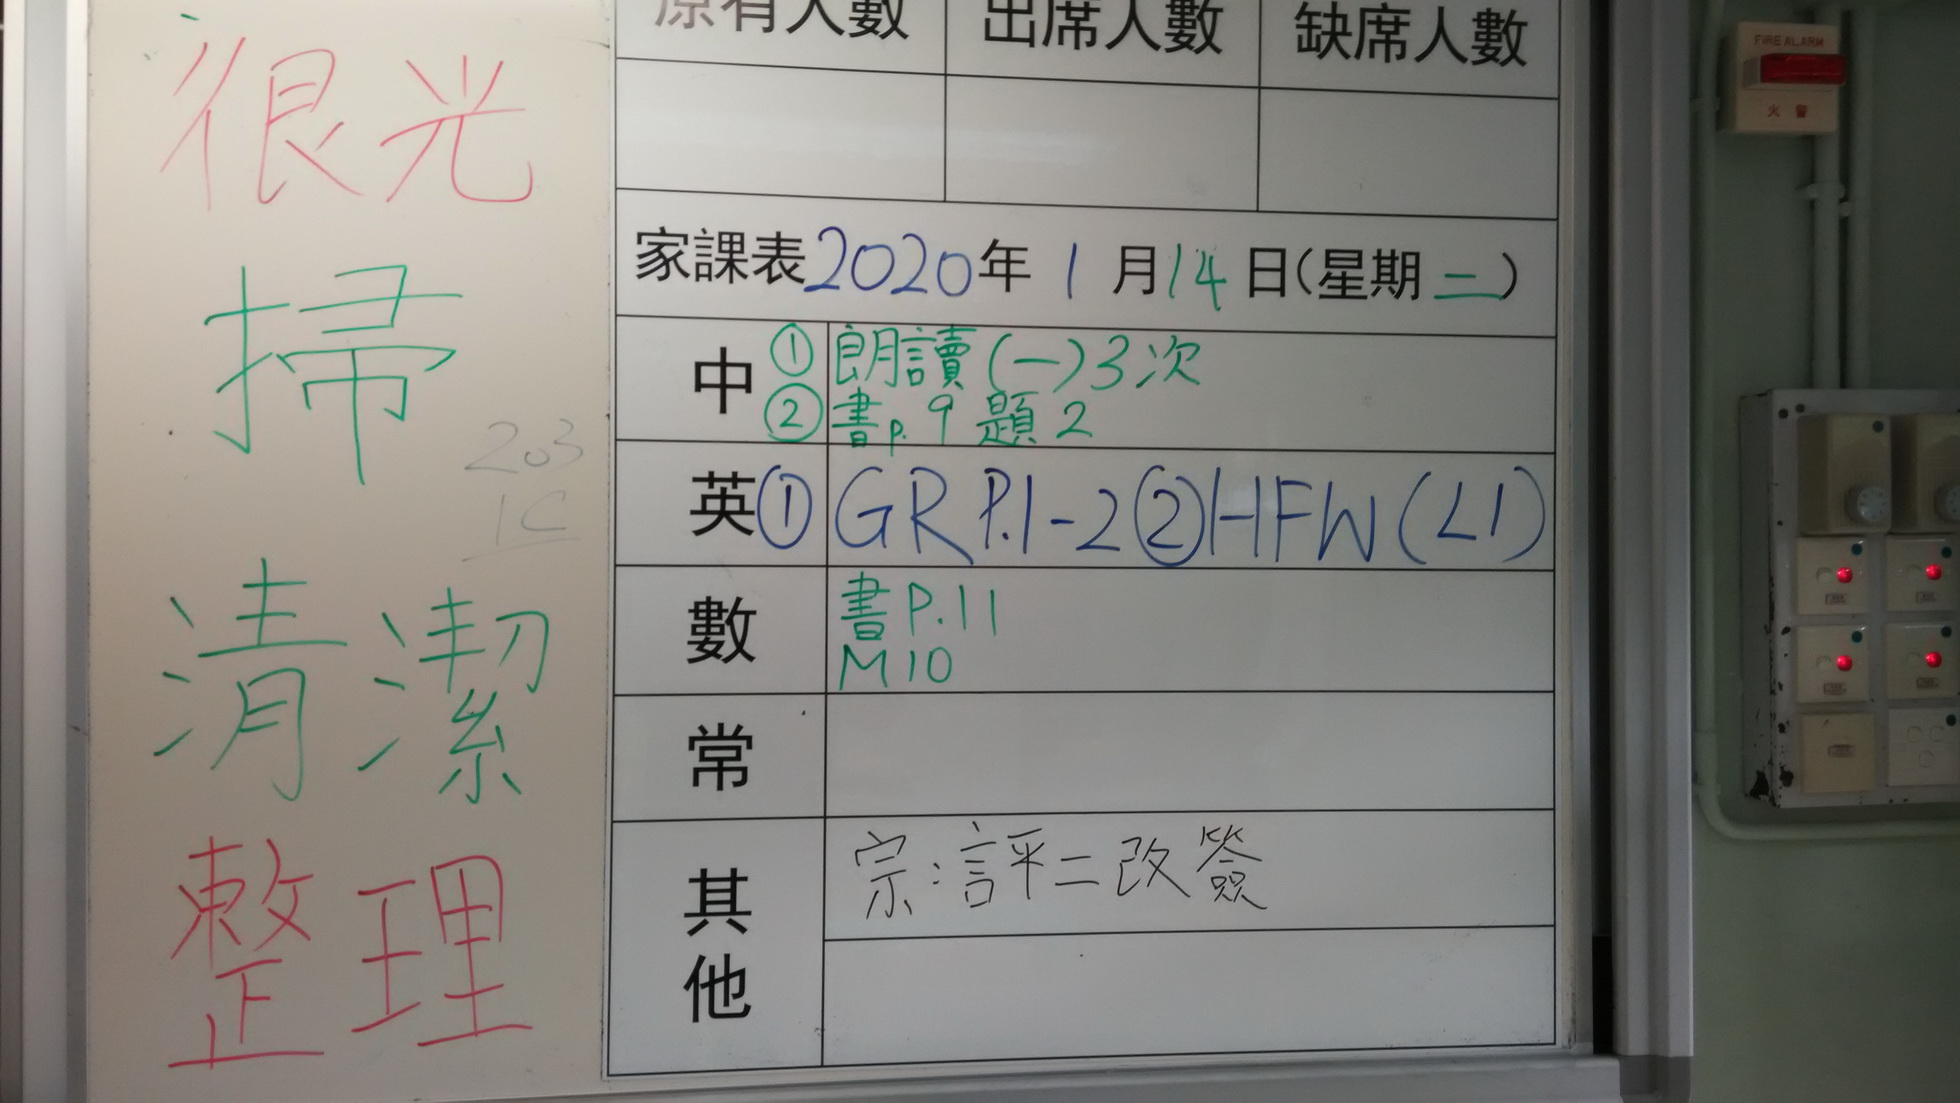 很光
掃
203
1C
清潔
整理
原有人數 出席人數 缺席人數
家課表2020年1月14日(星期二)
中 ① 朗讀(一)3次
② 書p.9題2
英 ① GR P.1-2 ② HFW(L1)
數 書P.11
M10
常
其他 宗:評二改簽
FIRE ALARM
火警